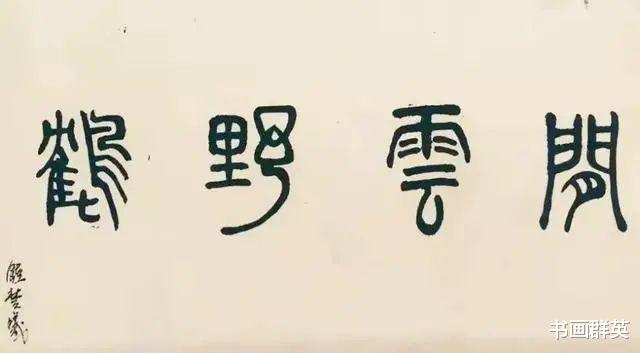 閒雲野鶴
书画群英